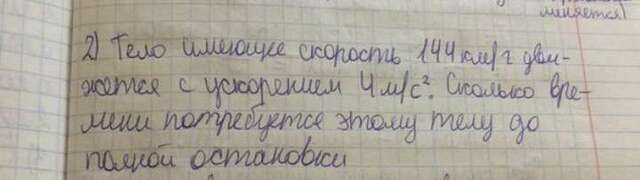 меняется)
2) Тело имеющее скорость 144 км/г дви-
жется с ускорением 4 м/с². Сколько вре-
мени потребуется этому телу до
полной остановки